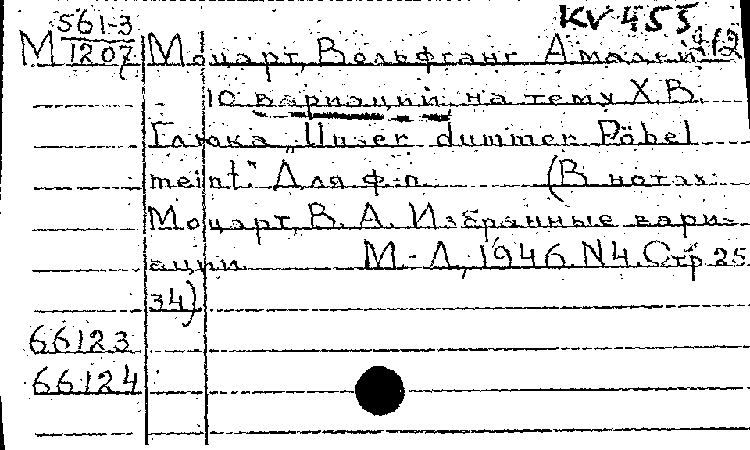 KV 455
М 561-3
1207
Моцарт, Вольфганг Амадей
10 вариаций на тему Х.В.
Глюка „Unser dummer Pöbel
meint." Для ф-п. (В нотах:
Моцарт, В. А. Избранные вари-
ации М.-Л., 1946. N4. Стр 25
34)
66123
66124